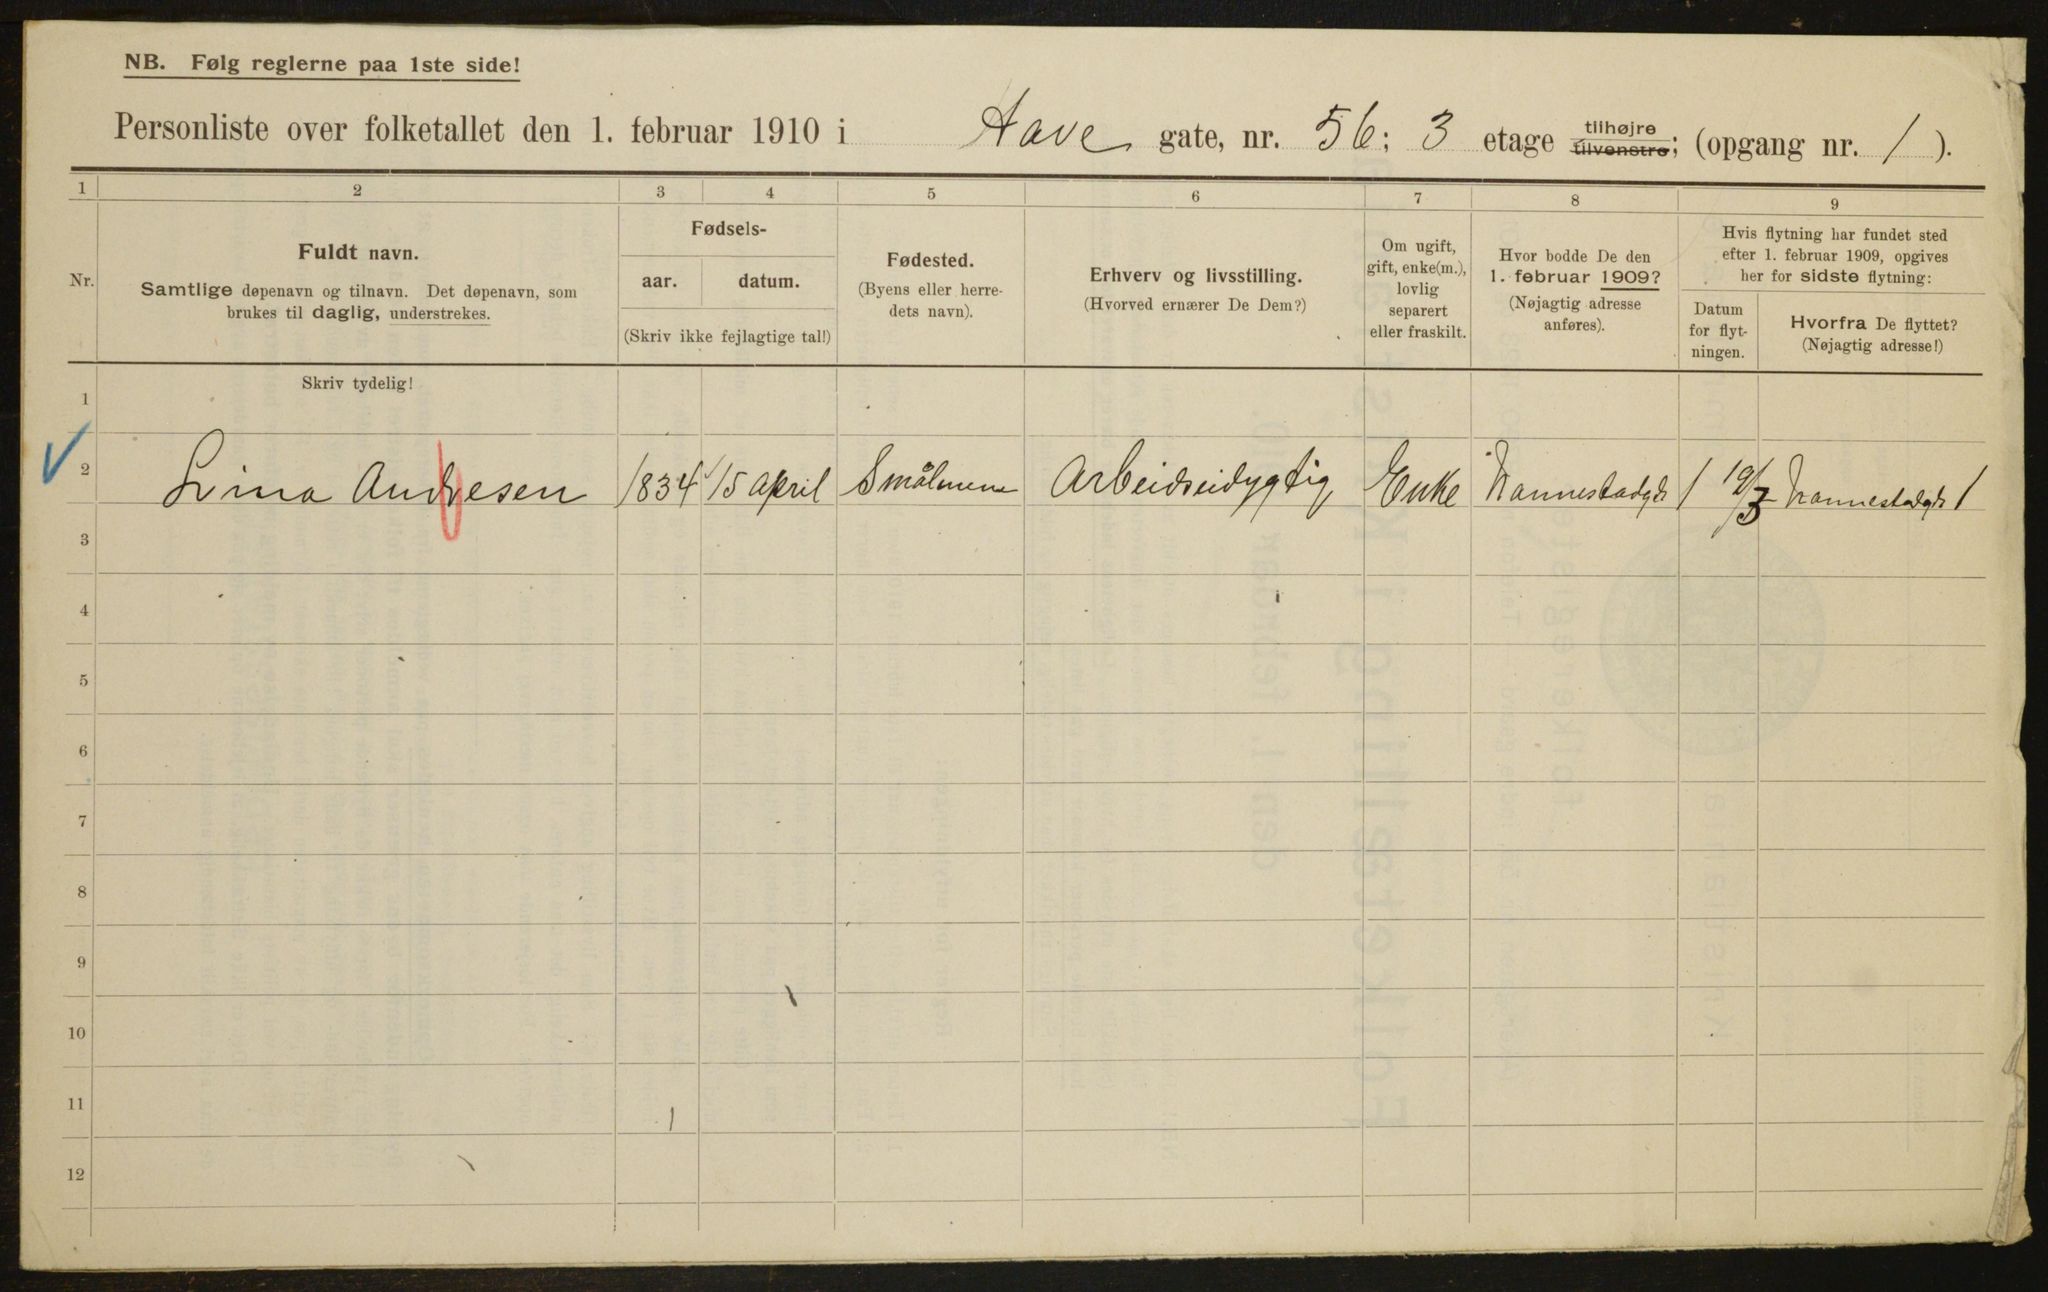 NB. Følg reglerne paa 1ste side!
Personliste over folketallet den 1. februar 1910 i Aave gate, nr. 56; 3 etage tilhøjre tilvenstre; (opgang nr. 1).
1 2 3 4 5 6 7 8 9
Nr.
Fuldt navn.
Samtlige døpenavn og tilnavn. Det døpenavn, som
brukes til daglig, understrekes.
Fødsels-
aar. datum.
(Skriv ikke fejlagtige tal!)
Fødested.
(Byens eller herre-
dets navn).
Erhverv og livsstilling.
(Hvorved ernærer De Dem?)
Om ugift,
gift, enke(m.),
lovlig
separert
eller fraskilt.
Hvor bodde De den
1. februar 1909?
(Nøjagtig adresse
anføres).
Hvis flytning har fundet sted
efter 1. februar 1909, opgives
her for sidste flytning:
Datum
for flyt-
ningen.
Hvorfra De flyttet?
(Nøjagtig adresse!)
Skriv tydelig!
1
2 Lina Andresen 1834 15 april Smålnene Arbeidseidygtig Enke Nannestadgd 1 19/3 Nannestadgd 1
3
4
5
6
7
8
9
10
11
12